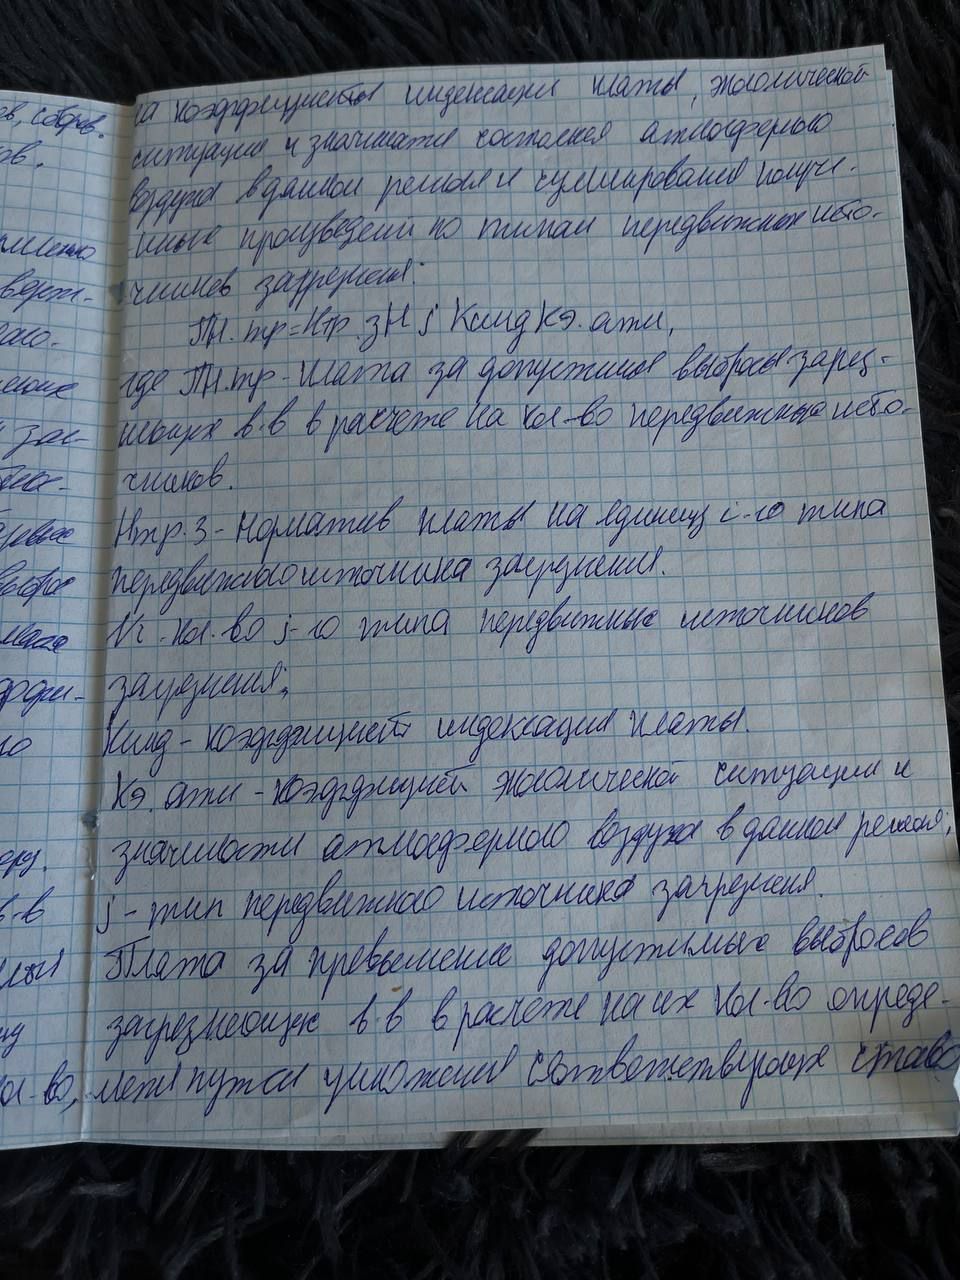 на коэффициенты индексации платы, экологической
ситуации и значимати состояния атмосферного
воздуха в данном регионе и суммирования получе-
нных произведений по типам передвижных исто-
чников загрязнения:
Пн.тр=Нтр.зNjКиндКэ.атм,
где Пн.тр - плата за допустимые выбросы загряз-
няющих в-в в расчете на кол-во передвижных исто-
чников.
Нтр.з - норматив платы на единицу i-го типа
передвижного источника загрязнения.
кол-во j-го типа передвижных источников
загрязнения;
Кинд - коэффициент индексации платы.
Кэ.атм - коэффициент экологической ситуации и
значимости атмосферного воздуха в данном регионе;
j - тип передвижного источника загрязнения.
Плата за превышение допустимых выбросов
загрязняющих в-в в расчете на их кол-во опреде-
ляется путем умножения соответствующих ставо
ов, сборов.
ов.
верж-
ного
в-в
ол-во,